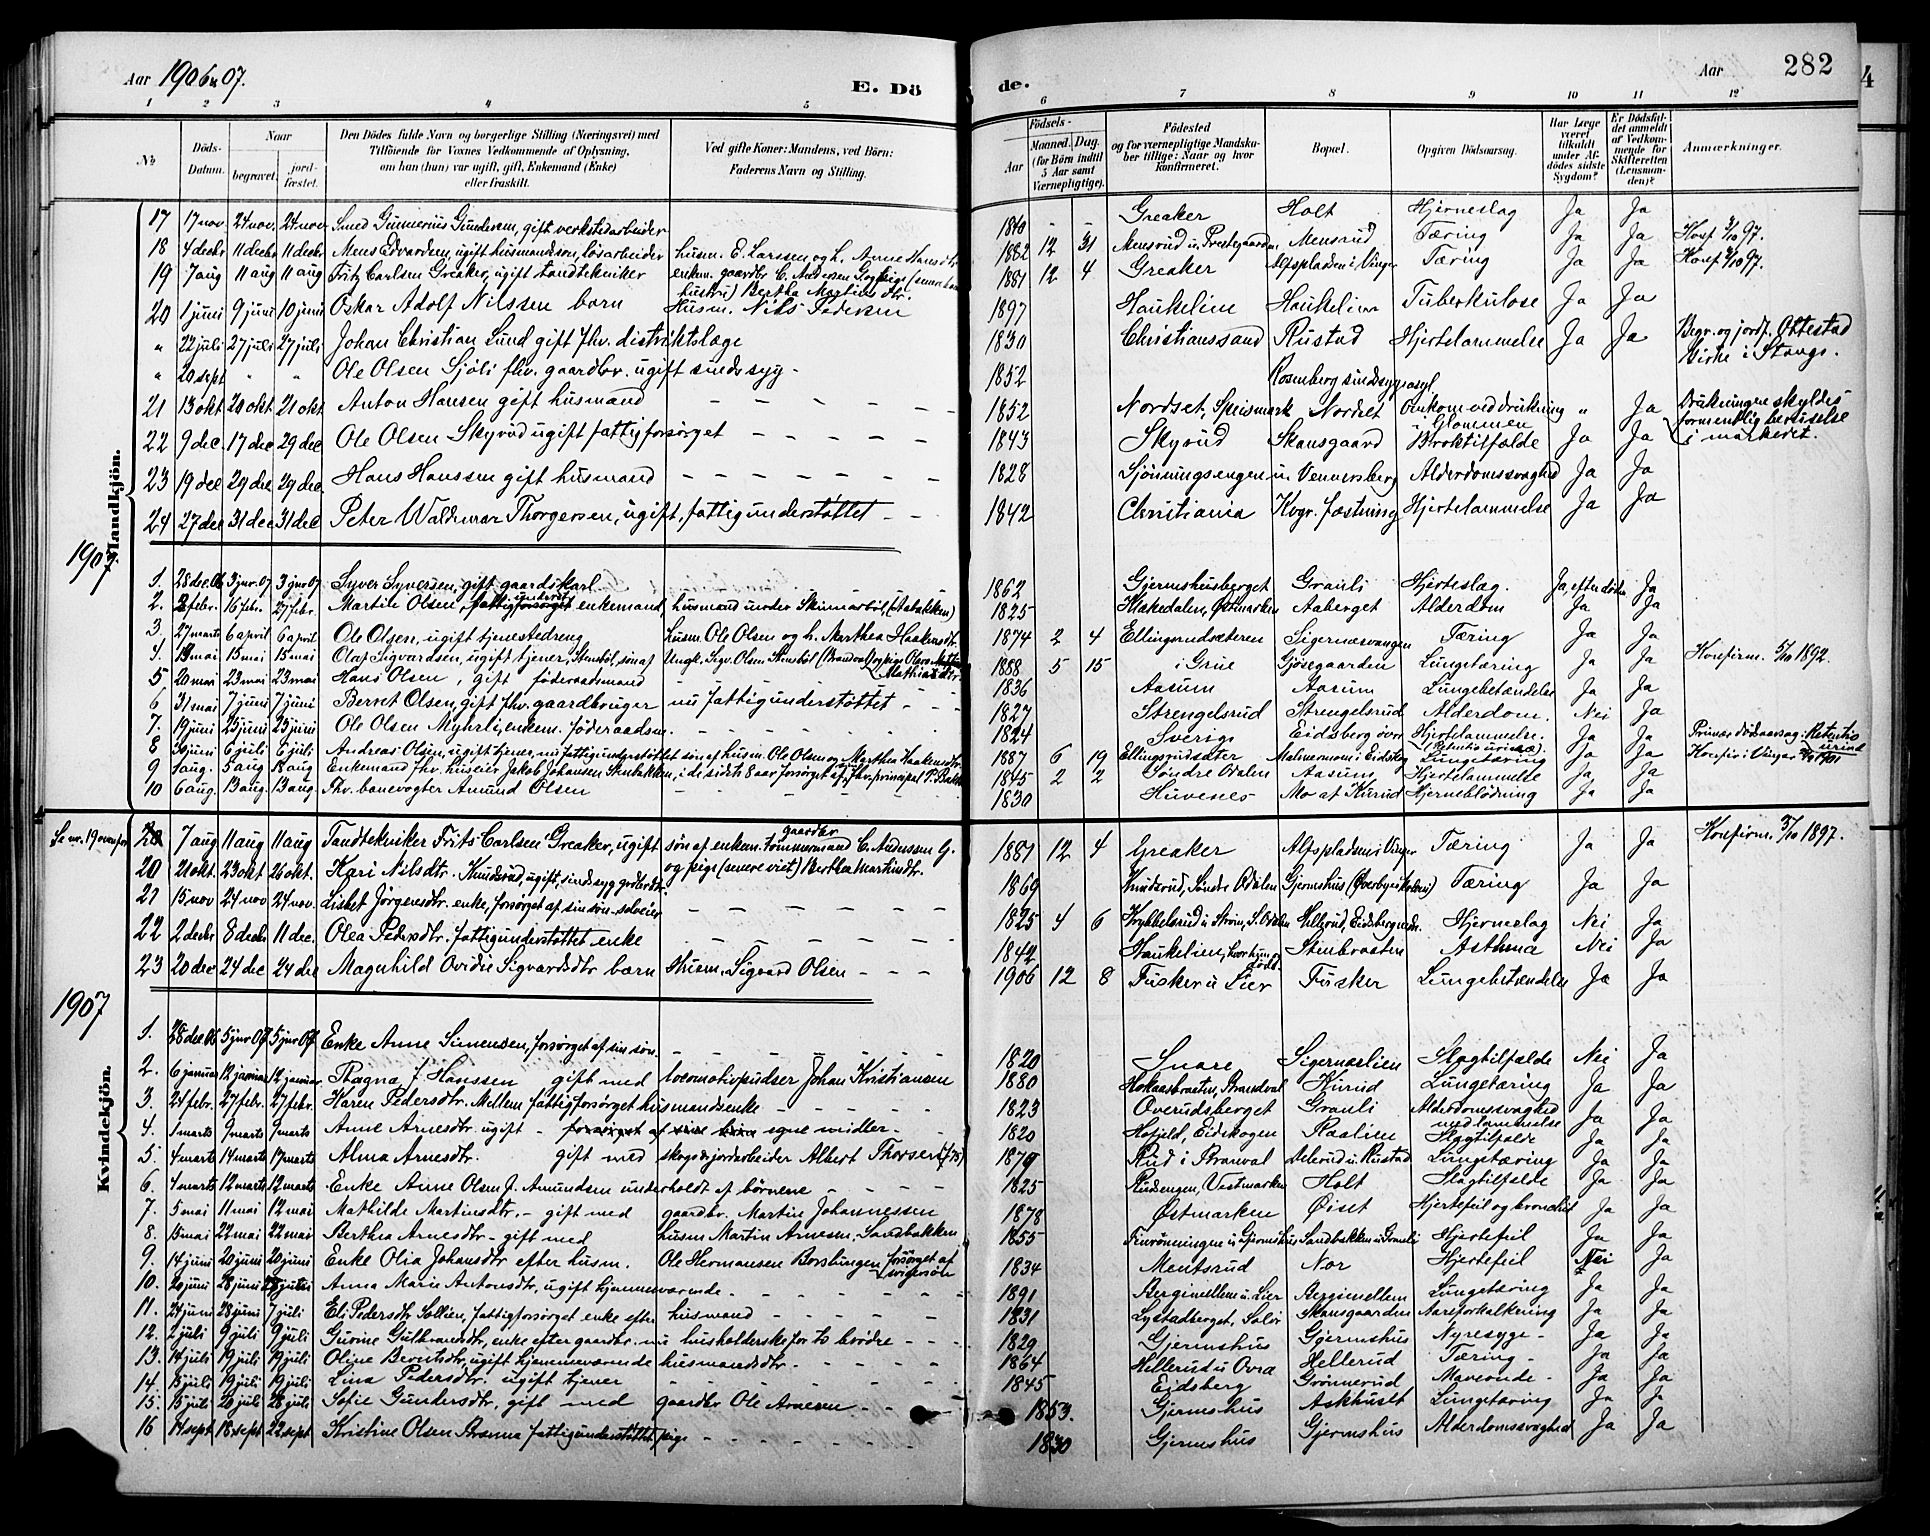 Aar 1906 & 07.
E. Dö
de.
Aar
282
1 2 3 4 5 6 7 8 9 10 11 12
No
Döds-Datum.
Naar
begravet. jordfæstet.
Den Dödes fulde Navn og borgerlige Stilling (Næringsvei) med Tilföiende for Voxnes Vedkommende af Oplysning, om han (hun) var ugift, gift, Enkemand (Enke) eller fraskilt.
Ved gifte Koner: Mandens, ved Börn: Faderens Navn og Stilling.
Födsels-
Aar
Maaned. Dag.
(for Börn indtil 5 Aar samt Værnepligtige).
Födested og for værnepligtige Mandskaber tillige: Naar og hvor Konfirmeret.
Bopæl.
Opgiven Dödsaarsag.
Har Læge været tilkaldt under Afdödes sidste Sygdom?
Er Dödsfaldet anmeldt af Vedkommende for Skifteretten (Lensmanden)?
Anmærkninger.
Mandkjön.
17 17 nov 24 nov 24 nov Smed Gunnerius Gundersen, gift, verkstedarbeider 1840 - - Greaker Holt Hjerneslag Ja Ja
18 4 decbr 11 decbr 11 decbr Mens Edvardsen, ugift husmandssön, lösarbeider husm. E. Larssen og h. Anne Hansdtr 1882 12 31 Mensrud u. Prestegaarden Mensrud Tæring Ja Ja Konf 3/10 97.
19 7 aug 11 aug 11 aug Fritz Carlsen Greaker, ugift tandtekniker enkem. gaardbr C. Andersen G og pige (senere hans hustru) Bertha Martinsdtr. 1881 12 4 Greaker Alfspladsen i Vinger Tæring Ja Ja Konf 3/10 97.
20 1 juni 9 juni 10 juni Oskar Adolf Nilssen barn Husm. Nils Pedersen 1897 Haukelien Haukelien Tuberkulose Ja Ja
" 22 juli 27 juli 27 juli Johan Christian Lund gift fhv. distriktslæge 1830 Christianssand Rustad Hjertelammelse Ja Ja Begr. og jordf. Ottestad Kirke i Stange.
" 20 sept " " Ole Olsen Sjöli fhv. gaardbr. ugift sindssyg - 1852 Rosenberg sindssygeasyl
21 13 okt 20 okt 21 okt Anton Hansen gift husmand 1852 Nordset, Speismark Nordset Omkom ved drukning i Glommen " Ja Drukningen skyldes formentlig beruselse i markedet.
22 9 dec 17 dec 29 dec Ole Olsen Skyrud ugift fattigforsörget 1843 Skyrud Skansgaard Broktilfælde Ja Ja
23 19 dec 29 dec 29 dec Hans Hanssen gift husmand 1828 Sjönningsengen u. Vennersberg Alderdomssvaghed Ja Ja
24 27 dec 31 dec 31 dec Peter Waldemar Thorgersen, ugift, fattigunderstöttet 1842 Christiania Kvgr. fæstning Hjertelammelse Ja Ja
1907.
1. 28 dec. 06 3 jnr. 07 3 jnr 07 Syver Syversen, gift gaardskarl 1862 Gjermshusberget Grauli Hjerteslag. Ja, efter döden Ja
2. 8 febr. 16 febr. 27 febr. Martin Olsen, fattigforsörget underst. enkemand, husmand under Skinnarböl 1825 Klækedalen, Östmarken Aaberget Alderdom Ja Ja
3. 27 marts 6 april 6 april Ole Olsen, ugift tjenestedreng husm. Ole Olsen og h. Marthea Haakensdtr 1874 2 4 Ellingsrudsæteren Sigernæsvangen Tæring Ja Ja
4. 13 mai 15 mai 15 mai Olaf Sigvardsen, ugift tjener, Stensböl, sön af Ungk. Sigv. Olsen Stensböl (Brandval) og pige Oleva Mathiasdtr 1888 5 15 i Grue Gjösegaarden Lungetæring Ja Ja Konfirm. 5/10 1892.
5 20 mai 23 mai 23 mai Hans Olsen, gift föderaadsmand 1836 Aasum Aasum Lungebetændelse Ja Ja
6 31 mai 7 juni 7 juni Bernt Olsen, gift fhv. gaardbruger nu fattigunderstöttet 1827 Strengelsrud Strengelsrud Alderdom. Nei Ja
7. 19 juni 25 juni 25 juni Ole Olsen Myhrli, enkem. föderaadsm. 1824 Sverige Eidsberg övre Hjertelammelse. (Retentio urinae) Ja Ja Primær dödsaarsag: Retentio urinæ
8 30 juni 6 juli 6 juli Andreas Olsen, ugift tjener, nu fattigunderstöttet sön af husm. Ole Olsen og Marthea Haakensdtr 1887 6 19 Ellingsrudsæter Malmermoen i Eidskog Lungetæring Ja Ja Konfir i Vinger 1901
9 1 aug. 5 aug 18 aug Enkemand fhv. huseier Jakob Johansen Stenbakken, i de sidste 8 aar forsörget af fhv. principal P. 1845 2 2 Söndre Odalen Aasum Hjertelammelse Ja Ja
10 6 aug 13 aug. 13 aug. Fhv. banevogter Amund Olsen 1830 Huvenes Mo af Kurud Hjerneblödning Ja Ja
Kvindekjön.
Se nr. 19 ovenfor 7 aug 11 aug 11 aug Tandtekniker Frits Carlsen Greaker, ugift sön af enkem. gaardbr tömmermand C. Anderssen G. og pige (senere viet) Bertha Martinsdtr. 1881 12 4 Greaker Alfspladsen i Vinger Tæring Ja Ja Konfirm. 3/10 1897.
20 21 okt 23 okt 26 okt. Kari Nilsdtr. Knudsrud, ugift, sindssyg grdbrdtr. 1869 Knudsrud, Söndre Odalen Gjermshus (Överbyeie) Tæring Ja Ja
21 15 nov 24 nov 24 nov. Lisbet Jörgensdtr. enke, forsörget af sin sön - selveier 1825 4 6 Krykkelsrud u Ström, S. Odalen Hellerud, Eidsberg nedre. Hjerneslag Nei Ja
22 2 decbr 8 decbr 11 dec. Olea Pedersdtr. fattigunderstöttet enke 1842 Haukelien, hvor hun er född. Stenbraaten Asthma Nei Ja
23 20 dec 24 dec 24 dec Magnhild Ovidie Sigvardsdtr barn Husm. Sigvard Olsen 1906 12 8 Fusker u Lier Fusker Lungebetændelse Ja Ja
1907
1. 28 dec 06 5 jnr 07 5 jnr 07 Enke Anne Simensen, forsörget af sin sön. 1820 Snare Sigernæslien Slagtilfælde Nei Ja
2. 6 januar 12 januar 12 januar Ragna J. Hanssen gift med locomotivpudser Johan Kristiansen 1880 Hokaasbraaten, Brandval Kurud Lungetæring Ja Ja
3. 24 febr. 27 febr. 27 febr. Karen Pedersdtr. Mellem fattigforsörget husmandsenke 1823 Overudsberget Grauli Alderdomssvaghed med lammelse Ja Ja
4. 1 marts 9 marts 9 marts Anne Arnesdtr. ugift - forsörget af sine egne midler 1820 Hofjeld, Eidskogen Raalien Slagtilfælde Ja Ja
5. 4 marts 14 marts 17 marts Alma Arnesdtr. gift med skogs & jordarbeider Albert Thorsen (f. 75) 1879 Rud i Branval Melerud u. Rustad Lungetæring Ja Ja
6. 4 marts 12 marts 12 marts Enke Anne Olsen f. Amundsen underholdt af börnene 1825 Rudsengen, Vestmarken Holt Slagtilfælde Ja Ja
7. 5 mai 11 mai 12 mai Mathilde Martinsdtr. - gift med gaardbr. Martin Johannessen 1878 Östmarken Öiset Hjertefeil og bronchit Ja Ja
8. 15 mai 22 mai 22 mai Berthea Arnesdtr - gift med husm Martin Arnesen, Sandbakken 1855 Finröenningen u Gjermshus Sandbakken u Grauli Hjertefeil Ja Ja
9. 14 juni 20 juni 20 juni Enke Olia Johansdtr efter husm. Ole Hermansen Borslungen forsörget af svigersön 1834 Mentsrud Nor Hjertefeil Nei Ja
10. 20 juni 28 juni 28 juni Anna Marie Antonsdtr, ugift hjemmeværende 1891 Bergimellem u. Lier Bergimellem Lungetæring Ja Ja
11. 24 juni 28 juni 7 juli Eli Pedersdtr Sollien, fattigforsörget enke efter husmand 1831 Lystadberget, Solör Skansgaarden Aareforkalkning Ja Ja
12. 2 juli 9 juli 9 juli Gurine Gulbrandsdtr, enke efter gaardbr. nu husholderske for to brödre 1829 Gjermshus Gjermshus Nyresyge - Ja Ja
13. 14 juli 19 juli 19 juli Oline Berntsdtr, ugift hjemmeværende husmandsdtr. 1864 Hellerud u Ovra Hellerud Tæring - Ja Ja
14. 18 juli 19 juli 19 juli Lina Pedersdtr. ugift tjener 1845 Eidsberg Grönnerud Maveonde - Ja Ja
15. 15 juli 20 juli 28 juli Sofie Gundersdtr, gift med gaardbr Ole Arnesen 1853. Gjermshus Askhuslt Lungetæring Ja Ja
16 14 sept 18 sept 22 sept Kristine Olsen Branna fattigunderstöttet pige 1830 Gjermshus Gjermshus Alderdomssvaghed Ja Ja